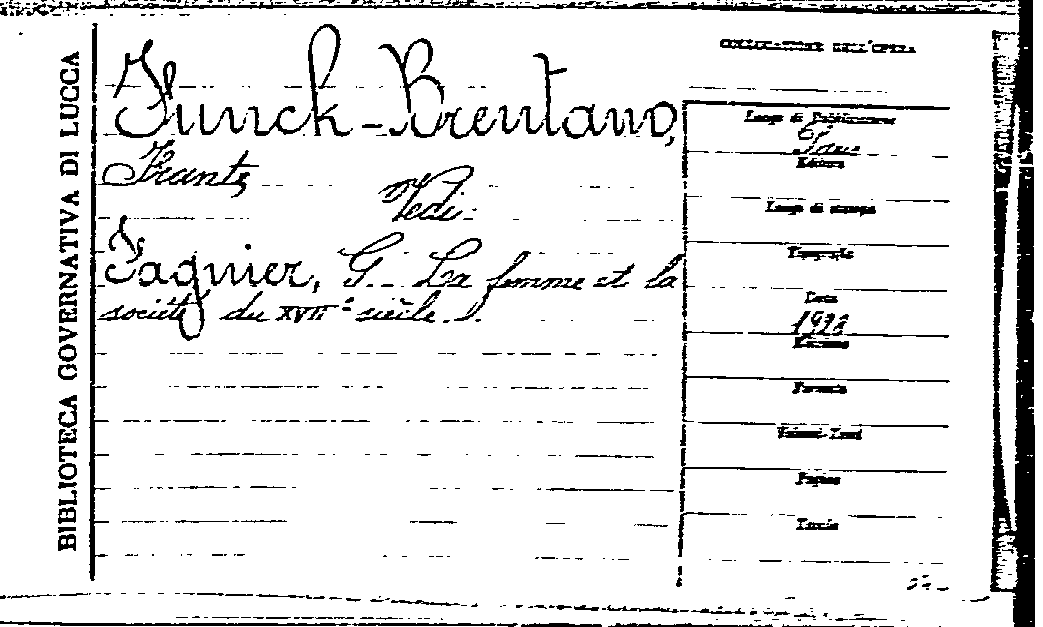 BIBLIOTECA GOVERNATIVA DI LUCCA
COLLOCAZIONE DELL'OPERA
Funck-Brentano,
Frantz
Vedi:
Fagniez, G. La femme et la
société du XVIIe siècle.
Luogo di Pubblicazione
Editore
Luogo di stampa
Tipografia
Data
Edizione
Formato
Volumi-Tomi
Pagine
Tavole